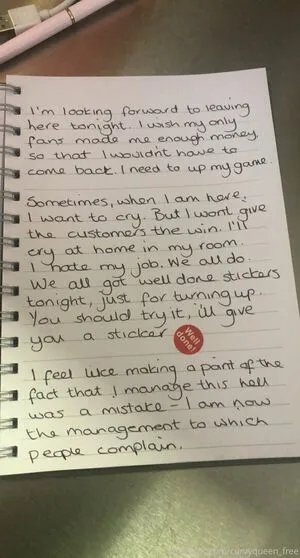 I'm looking forward to leaving
here tonight. I wish my only
fans made me enough money
so that I wouldn't have to
come back. I need to up my game.
Sometimes, when I am here,
I want to cry. But I wont give
the customers the win. I'll
cry at home in my room.
I hate my job. We all do.
We all got well done stickers
tonight, just for turning up.
You should try it, ill give
you a sticker
Well
done!
I feel like making a point of the
fact that I manage this hell
was a mistake - I am now
the management to which
people complain.